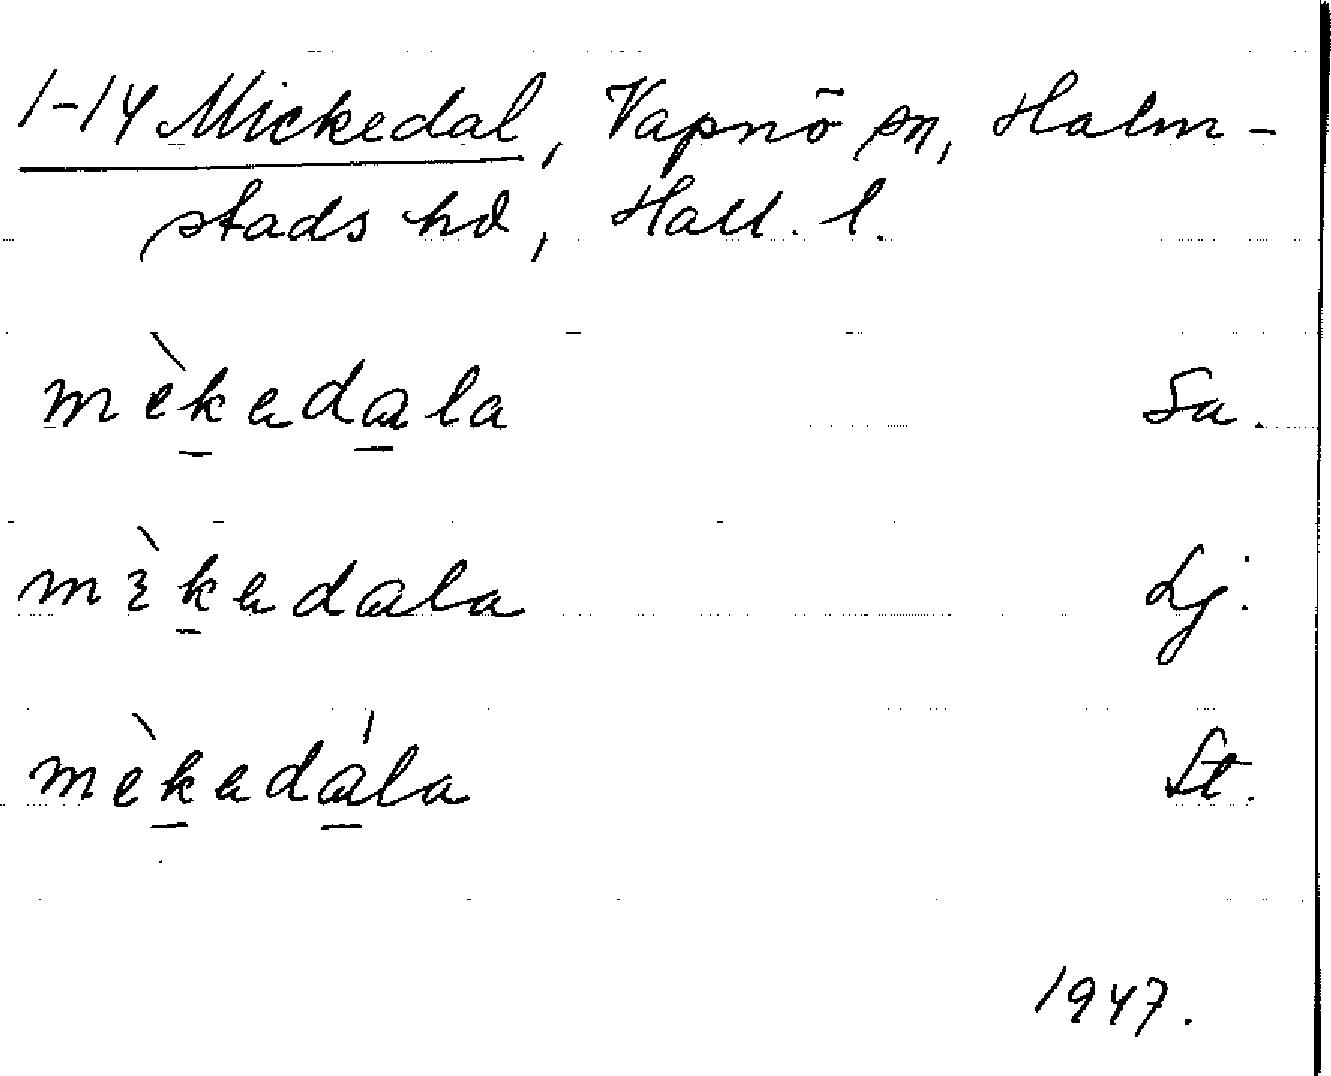 1-14 Mickedal, Vapnö sn, Halm-
stads hd, Hall. l.
mèkadala Sa.
mɛ̀kadala Lj.
mèkadála St.
1947.